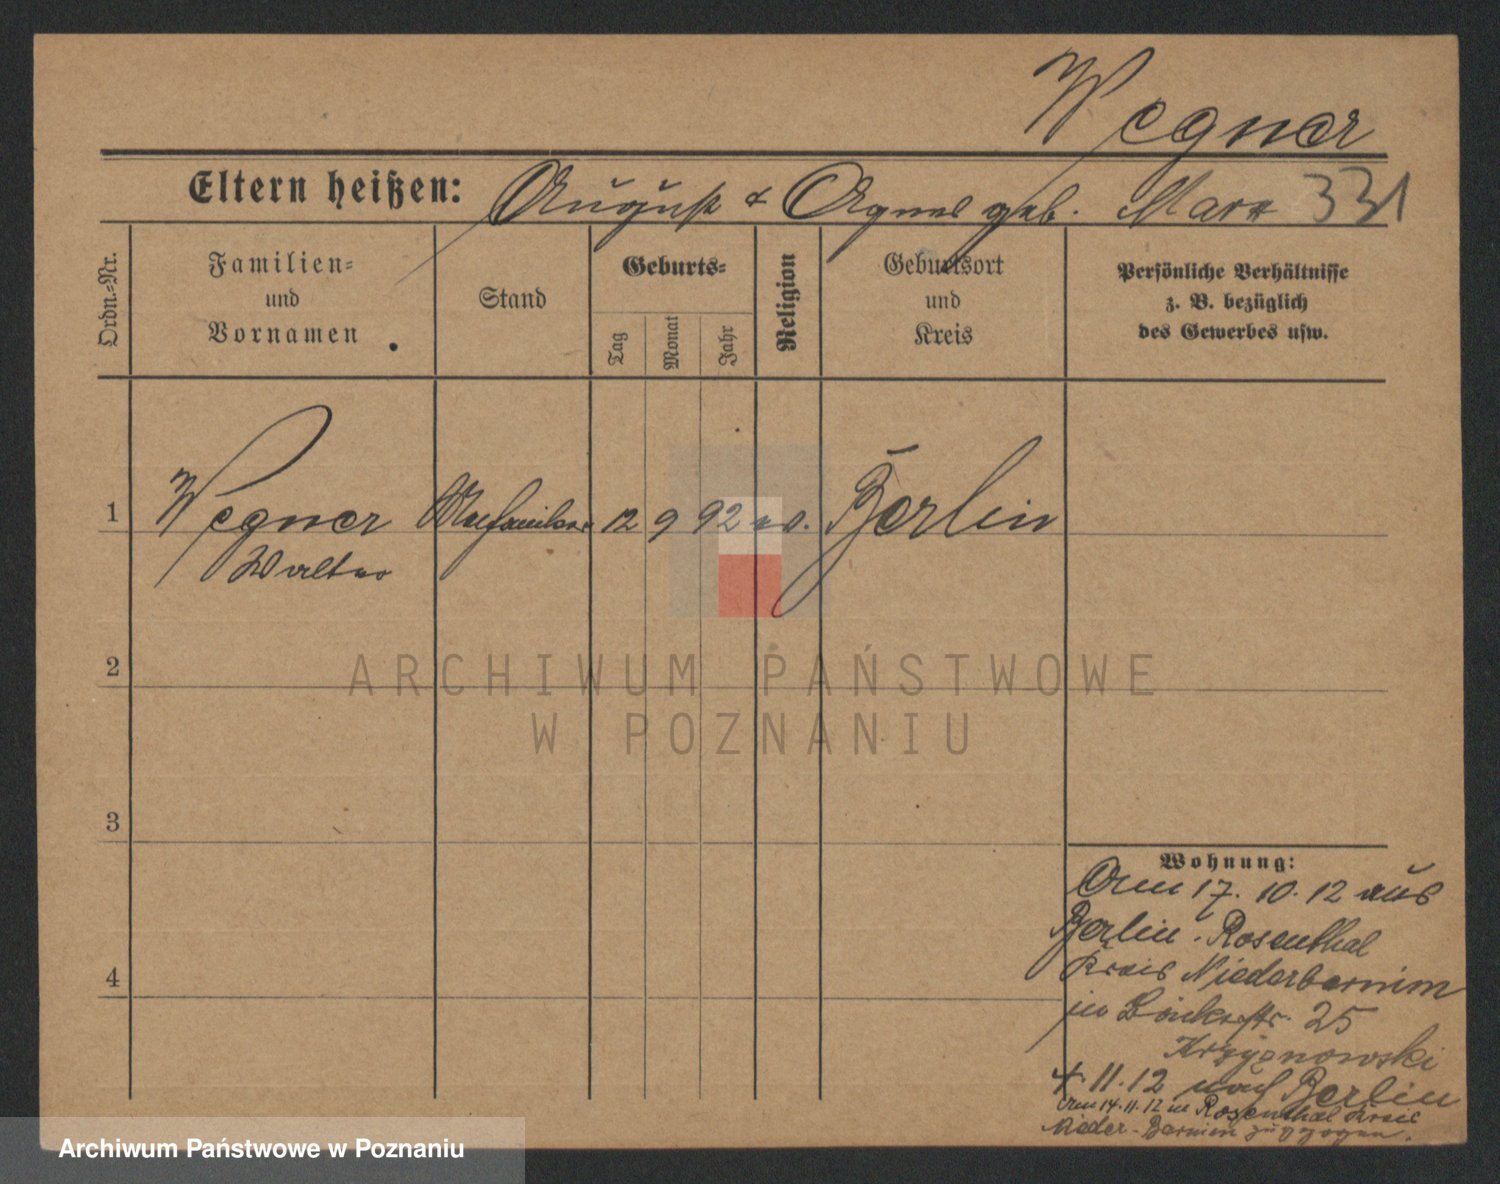 Wegner
Eltern heißen: August & Agnes geb. Marx 331
Ordn.-Nr.
Familien-
und
Vornamen
Stand
Geburts-
Tag
Monat
Jahr
Religion
Geburtsort
und
Kreis
Persönliche Verhältnisse
z. B. bezüglich
des Gewerbes usw.
1 Wegner Mechaniker 12 9 92 ev. Berlin
Walter
2
ARCHIWUM PAŃSTWOWE
W POZNANIU
3
Wohnung:
Am 17. 10. 12 aus
Berlin-Rosenthal
Kreis Niederbarnim
in 25
Krzyzanowski
4
4. 11. 12 nach Berlin
Am 14. 11. 12 in Rosenthal Kreis
Nieder-Barnim zugezogen.
Archiwum Państwowe w Poznaniu